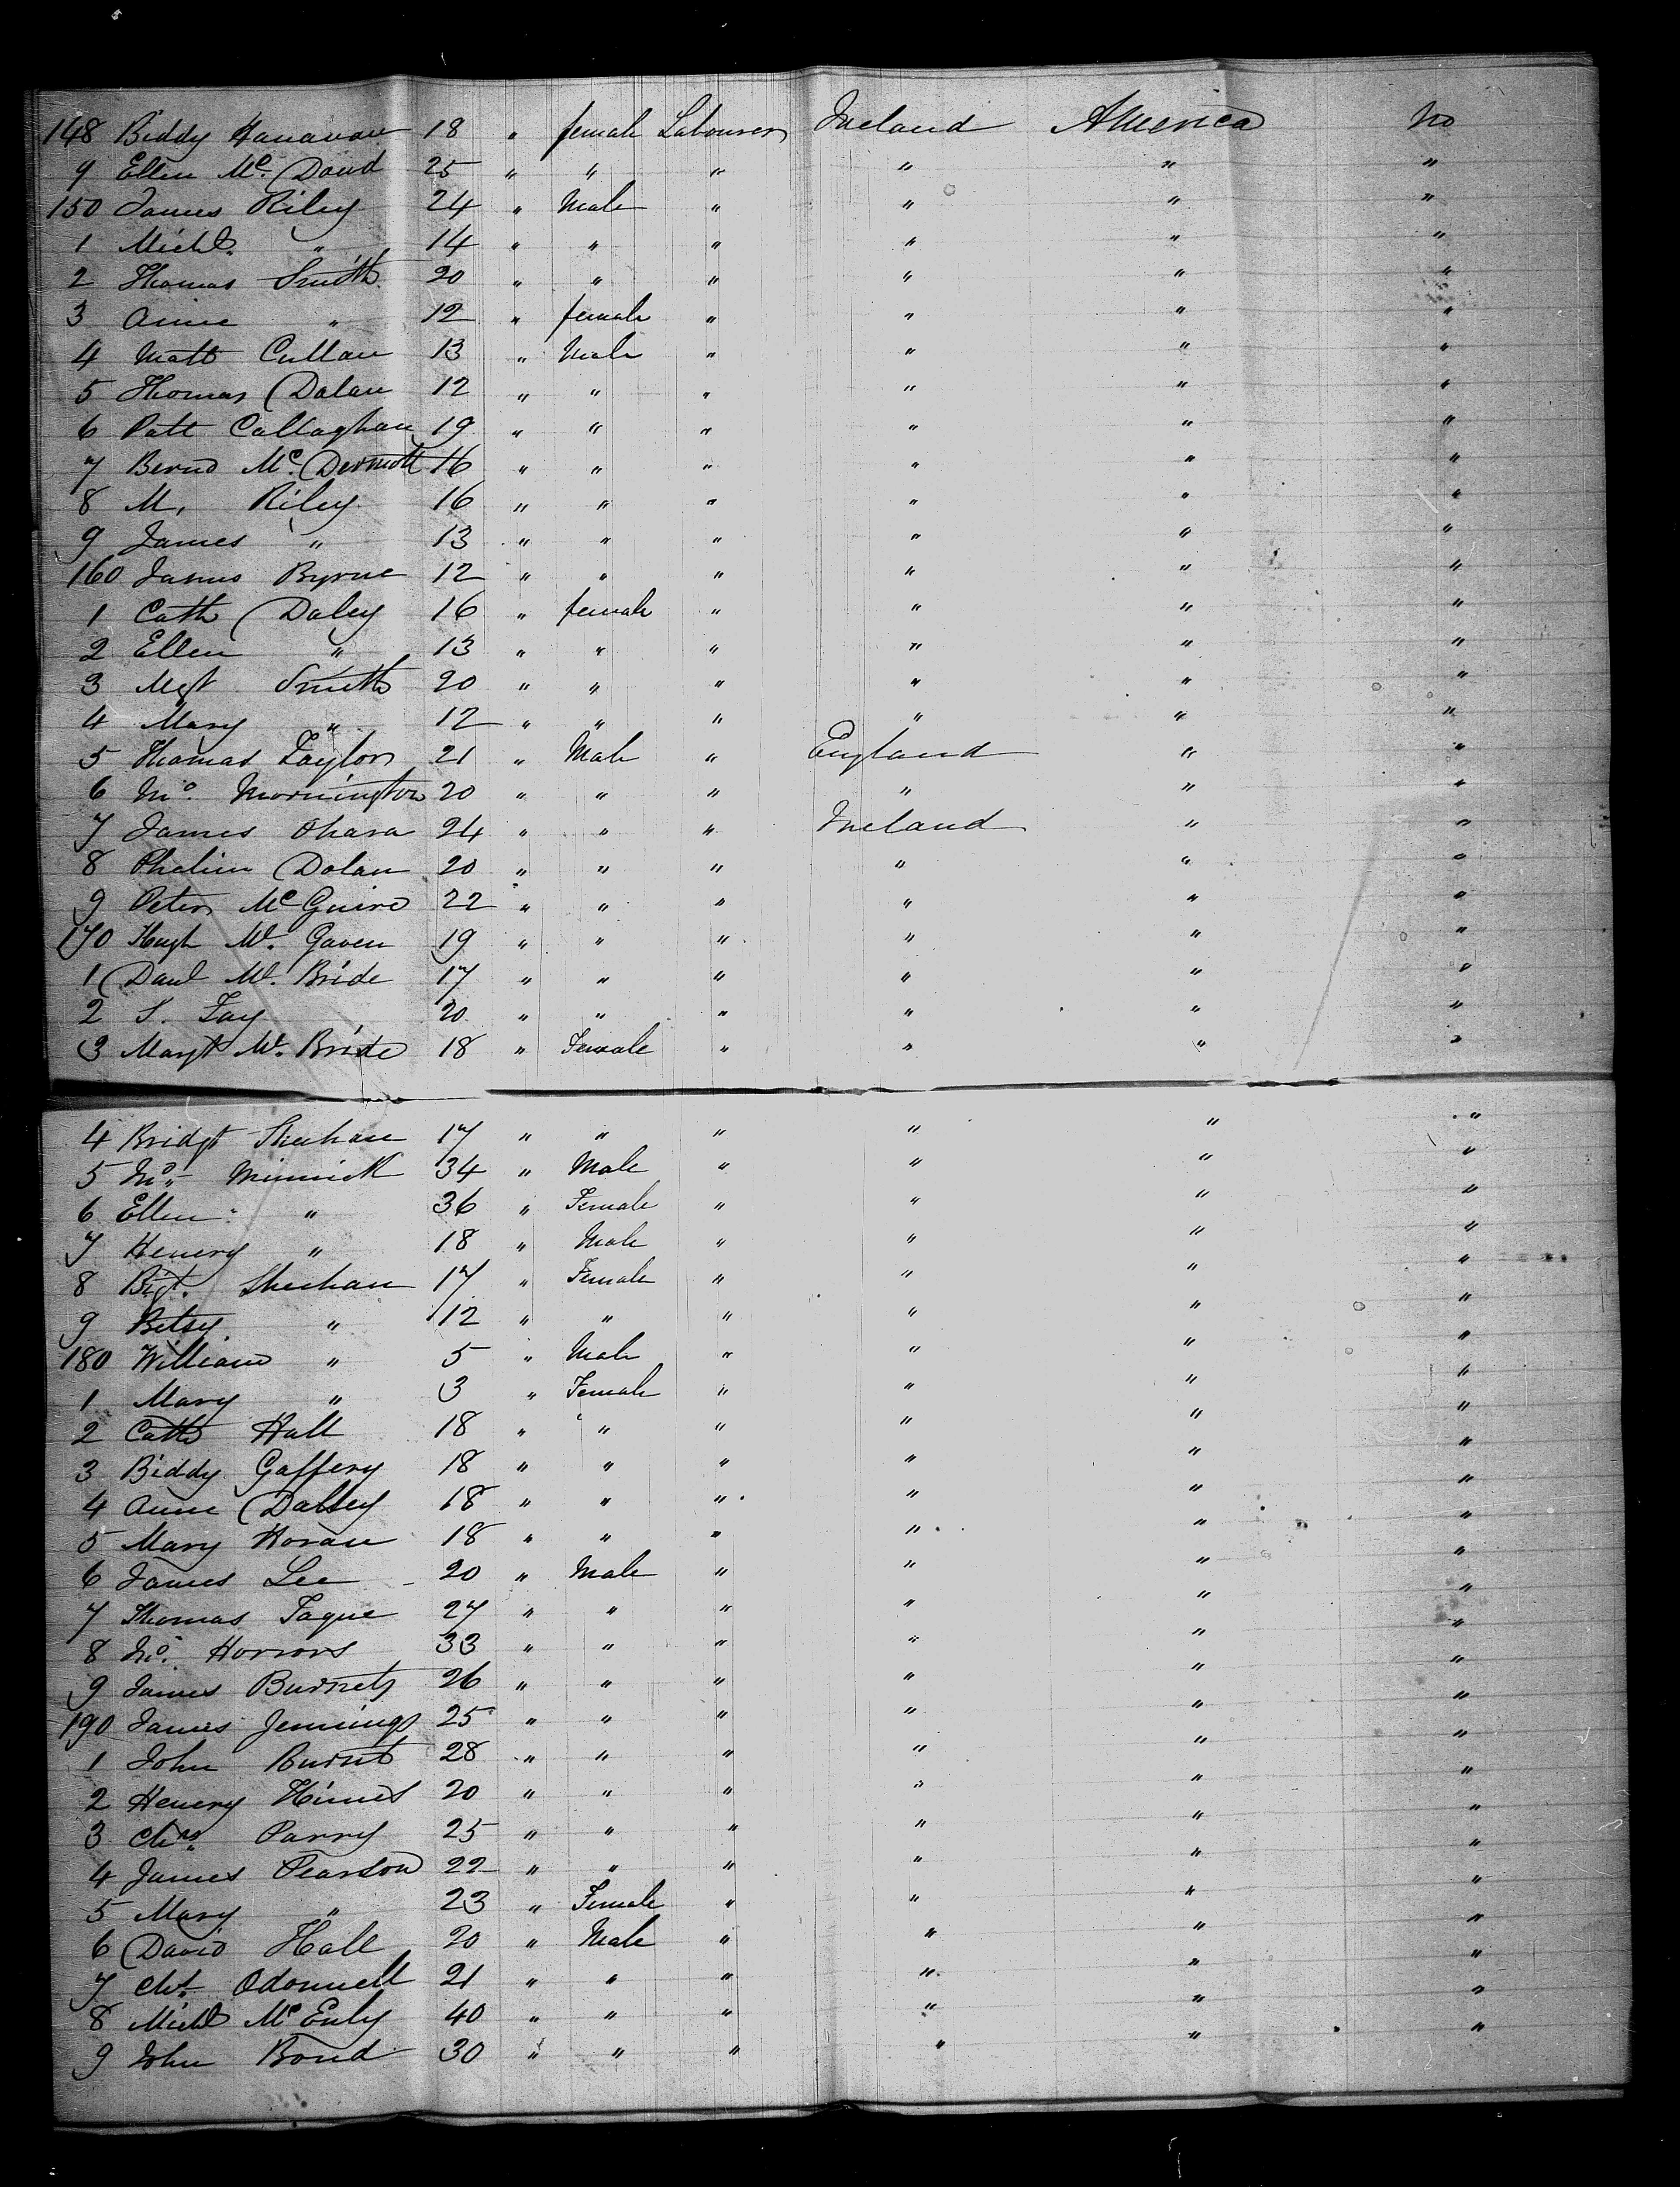 148 Biddy Hanavan 18 " female Labourer Ireland America No
9 Ellen Mc. David 25 " " " " " "
150 James Riley 24 " Male " " " "
1 Michl. " 14 " " " " " "
2 Thomas Smith 20 " " " " " "
3 Anne " 12 " female " " " "
4 Matt Cullan 13 " Male " " " "
5 Thomas Dolan 12 " " " " " "
6 Patt Callaghan 19 " " " " " "
7 Bernd Mc. Dermott 16 " " " " " "
8 M. Riley 16 " " " " " "
9 James " 13 " " " " " "
160 James Byrne 12 " " " " " "
1 Cath Daley 16 " female " " " "
2 Ellen " 13 " " " " " "
3 Mgt Smith 20 " " " " " "
4 Mary " 12 " " " " " "
5 Thomas Taylor 21 " Male " England " "
6 Jno. Mornington 20 " " " " " "
7 James Ohara 24 " " " Ireland " "
8 Phelim Dolan 20 " " " " " "
9 Peter McGuire 22 " " " " " "
170 Hugh Mc. Gaven 19 " " " " " "
1 Danl Mc. Bride 17 " " " " " "
2 S. Fay 20 " " " " " "
3 Margt Mc. Bride 18 " Female " " " "
4 Bridgt Sheehan 17 " " " " " "
5 Jno. Minnick 34 " Male " " " "
6 Ellen " 36 " Female " " " "
7 Henery " 18 " Male " " " "
8 Bigt. Sheehan 17 " Female " " " "
9 Betsy " 12 " " " " " "
180 William " 5 " Male " " " "
1 Mary " 3 " Female " " " "
2 Cath Hall 18 " " " " " "
3 Biddy Gaffery 18 " " " " " "
4 Anne Daltey 18 " " " " " "
5 Mary Horan 18 " " " " " "
6 James Lee 20 " Male " " " "
7 Thomas Tague 27 " " " " " "
8 Jno. Horrors 33 " " " " " "
9 James Burnets 26 " " " " " "
190 James Jennings 25 " " " " " "
1 John Burnt 28 " " " " " "
2 Henery Himes 20 " " " " " "
3 Chas Parry 25 " " " " " "
4 James Pearson 22 " " " " " "
5 Mary " 23 " Female " " " "
6 David Hall 20 " Male " " " "
7 Odonnell 21 " " " " " "
8 Michl McEnly 40 " " " " " "
9 John Bond 30 " " " " "